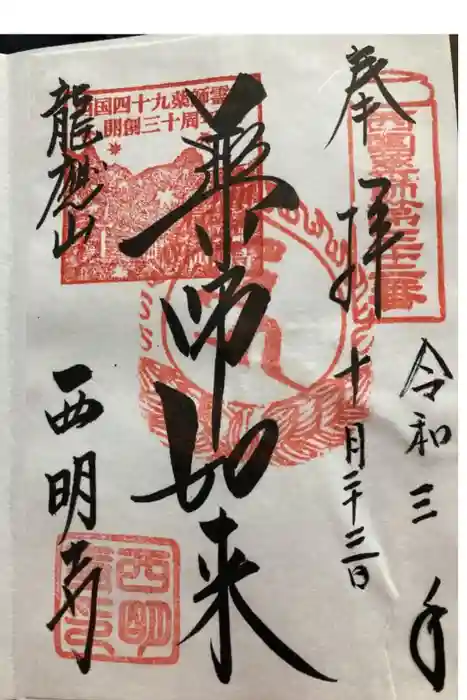 奉拝
令和三年
十月二十三日
薬師如来
龍應山
西明寺
西國薬師第三十二番
西国四十九薬師霊
開創三十周
西明